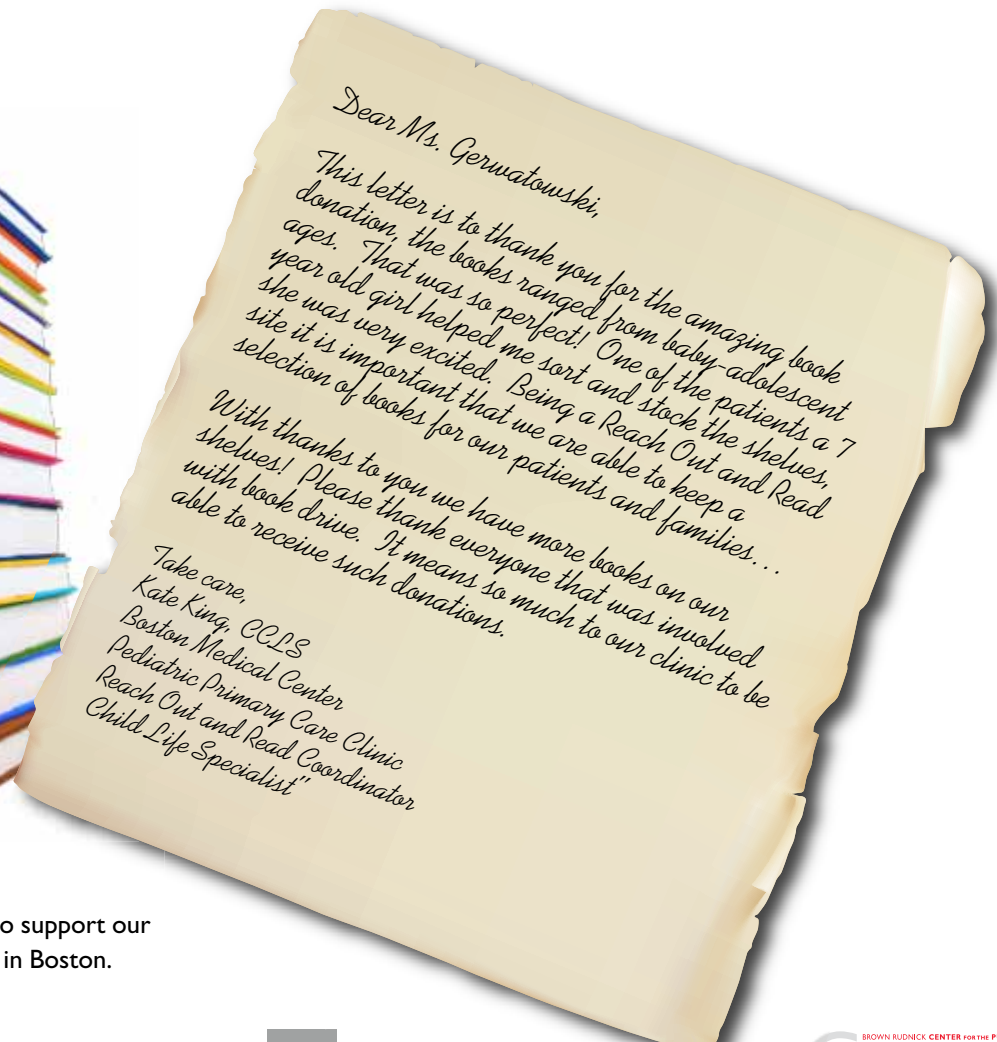 Dear Ms. Gerwatowski,
This letter is to thank you for the amazing book
donation, the books ranged from baby-adolescent
ages. That was so perfect! One of the patients a 7
year old girl helped me sort and stock the shelves,
she was very excited. Being a Reach Out and Read
site it is important that we are able to keep a
selection of books for our patients and families...
With thanks to you we have more books on our
shelves! Please thank everyone that was involved
with book drive. It means so much to our clinic to be
able to receive such donations.
Take care,
Kate King, CCLS
Boston Medical Center
Pediatric Primary Care Clinic
Reach Out and Read Coordinator
Child Life Specialist"
o support our
in Boston.
BROWN RUDNICK CENTER FOR THE P